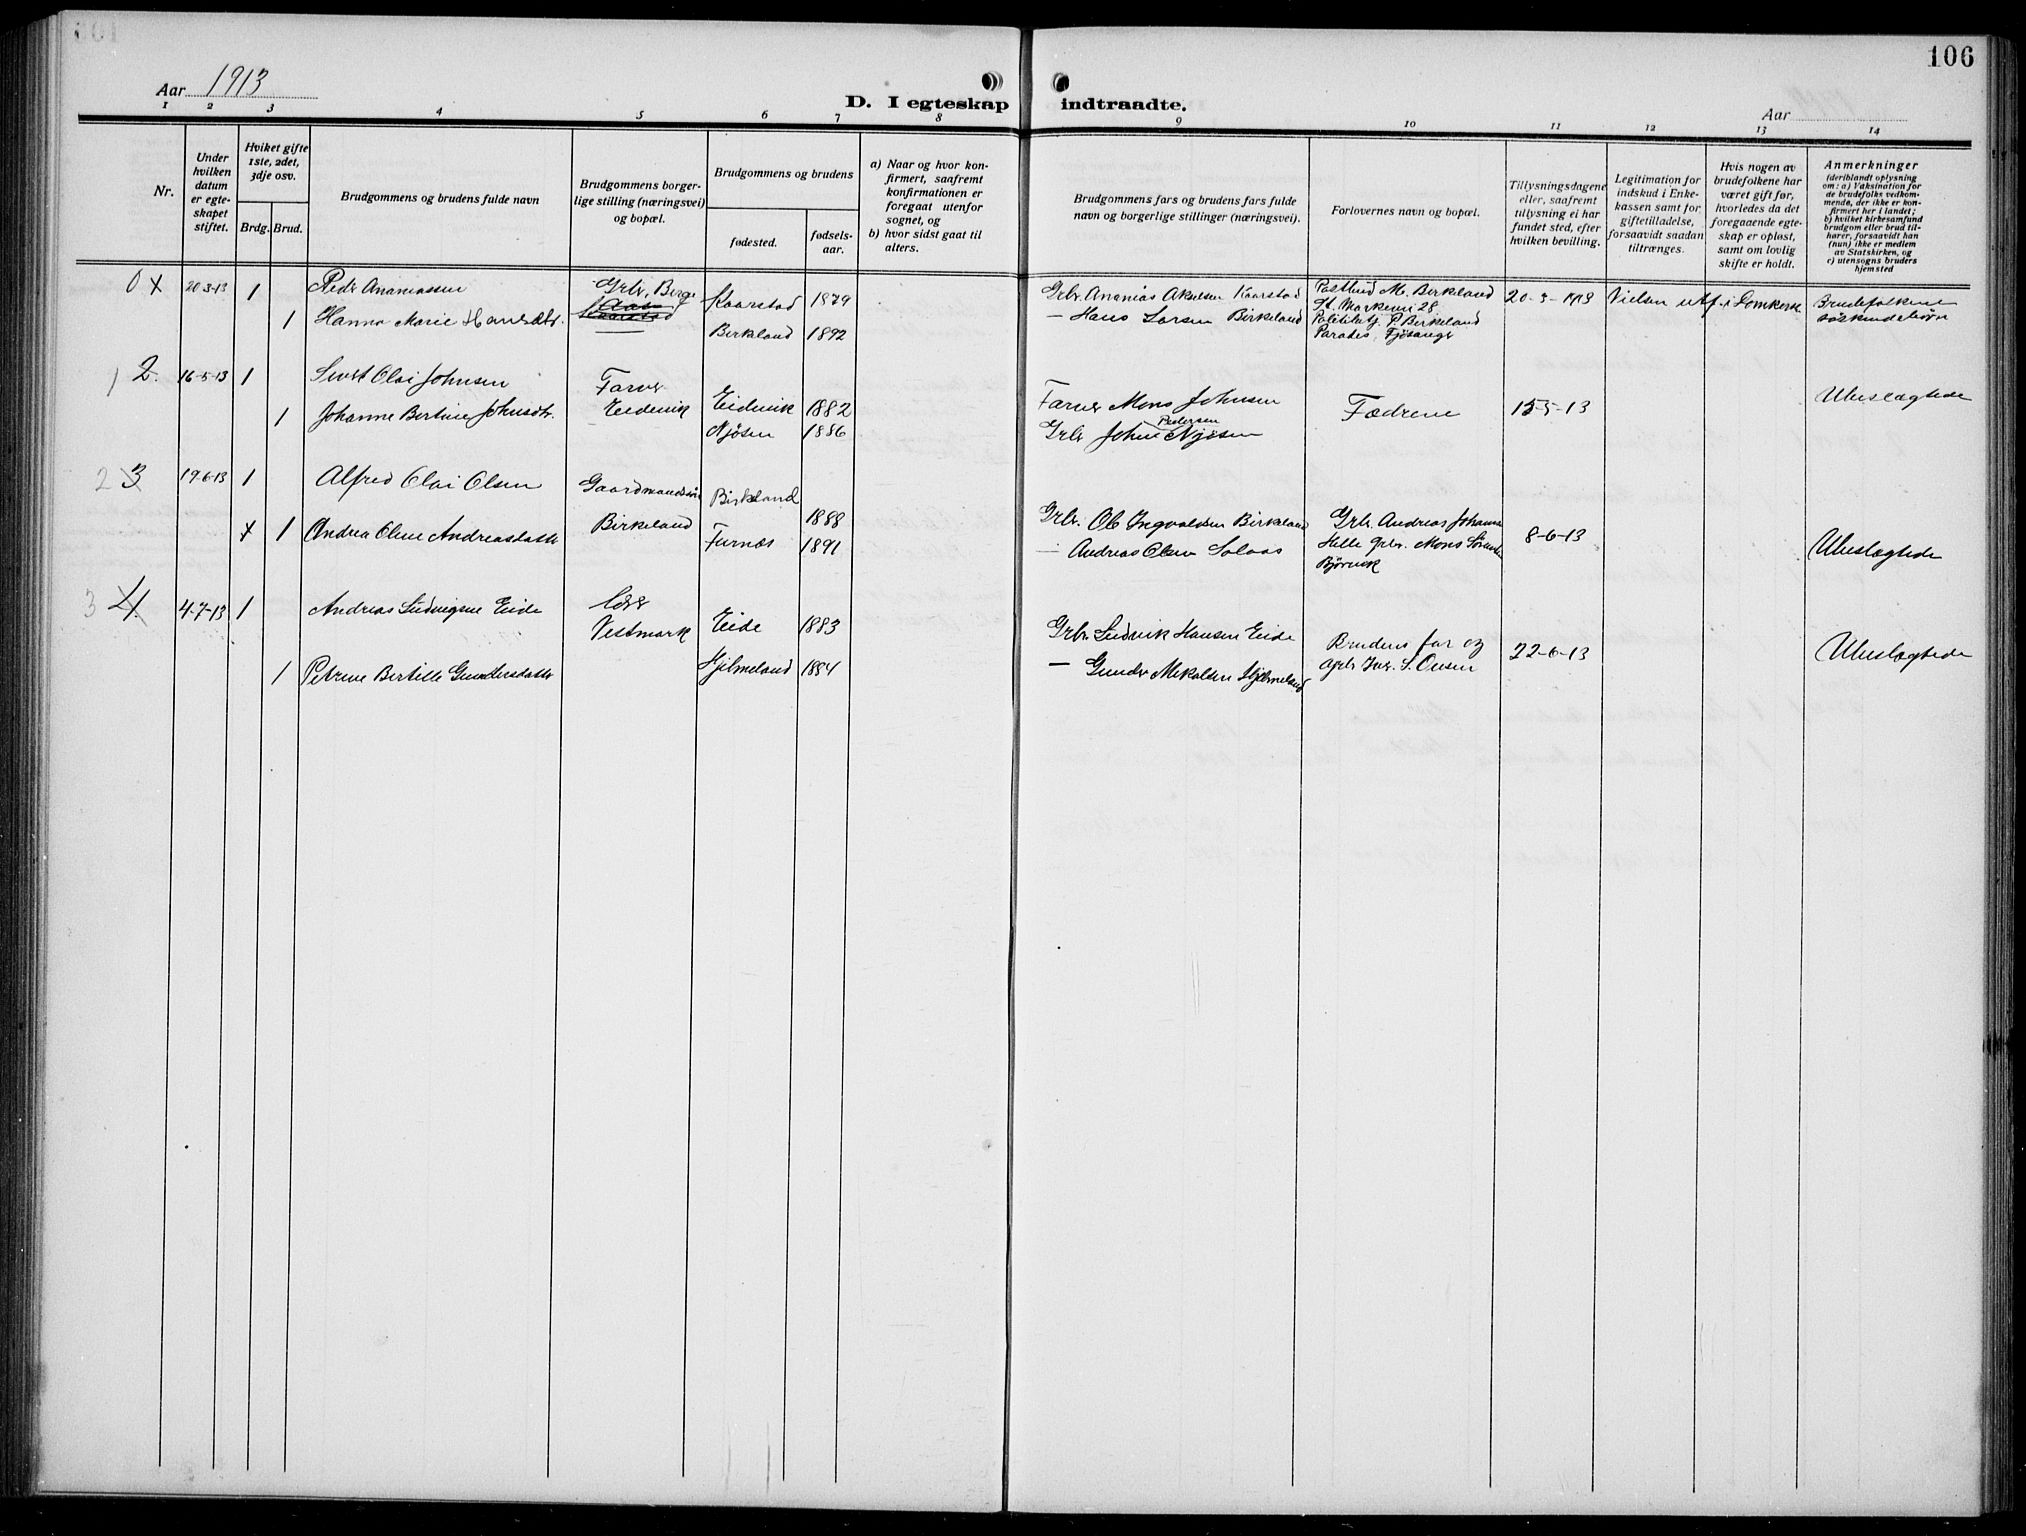 106
Aar 1913
D. I egteskap indtraadte.
Aar
1 2 3 4 5 6 7 8 9 10 11 12 13 14
Nr.
Under hvilken datum er egteskapet stiftet.
Hviket gifte 1ste, 2det, 3dje osv.
Brdg. Brud.
Brudgommens og brudens fulde navn
Brudgommens borgerlige stilling (næringsvei) og bopæl.
Brudgommens og brudens
fødested.
fødselsaar.
a) Naar og hvor konfirmert, saafremt konfirmationen er foregaat utenfor sognet, og
b) hvor sidst gaat til alters.
Brudgommens fars og brudens fars fulde navn og borgerlige stillinger (næringsvei).
Forlovernes navn og bopæl.
Tillysningsdagene eller, saafremt tillysning ei har fundet sted, efter hvilken bevilling.
Legitimation for indskud i Enkekassen samt for giftetilladelse, forsaavidt saadan tiltrænges.
Hvis nogen av brudefolkene har været gift før, hvorledes da det foregaaende egteskap er opløst, samt om lovlig skifte er holdt.
Anmerkninger
(deriblandt oplysning om: a) Vaksination for de brudefolks vedkommende, der ikke er konfirmert her i landet;
b) hvilket kirkesamfund brudgom eller brud tilhører, forsaavidt han (nun) ikke er medlem av Statskirken, og
c) utensogns bruders hjemsted
0 x 20-3-13 1 Peder Ananiassen Grbr, Berge Kaarstad 1879
1 Hanna Marie Hansdtr. Birkeland 1892
Grbr. Ananias Akselsen Kaarstad
— Hans Larsen Birkeland
Postbud M. Birkeland
St. Markevei 28
P. Birkeland
Paradis, Fjøsanger
20-3-1913 Nielsen utf. i Domkerke
Brudefolkene
søskendebørn
1 2. 16-5-13 1 Sivert Olai Johnsen Farver Eidevik 1882
1 Johanne Bertine Johnsdtr. Eidevik Njøsen 1886
Farver Mons Johnsen
Grbr John Pedersen Njøsen
Fædrene 15-5-13 Ubeslægtede
2 3 19-6-13 1 Alfred Olai Olsen Gaardmandssøn Birkeland 1888
x 1 Andrea Oline Andreasdatter Birkeland Furnæs 1891
Grbr. Ole Ingvaldsen Birkeland
— Andreas Olsen Solaas
Grbr. Andreas Johannes
Helle Grbr. Mons
Bjørnvik
8-6-13 Ubeslægtede
3 4. 4-7-13 1 Andreas Ludvigsen Eide Vestmark Eide 1883
1 Petrine Bertille Gundersdatter Hjelmeland 1884
Grbr. Ludvik Hansen Eide
— Gunder Mikalsen Hjelmeland
Brudens far og
Grbr S. Ousen
22-6-13 Ubeslægtede